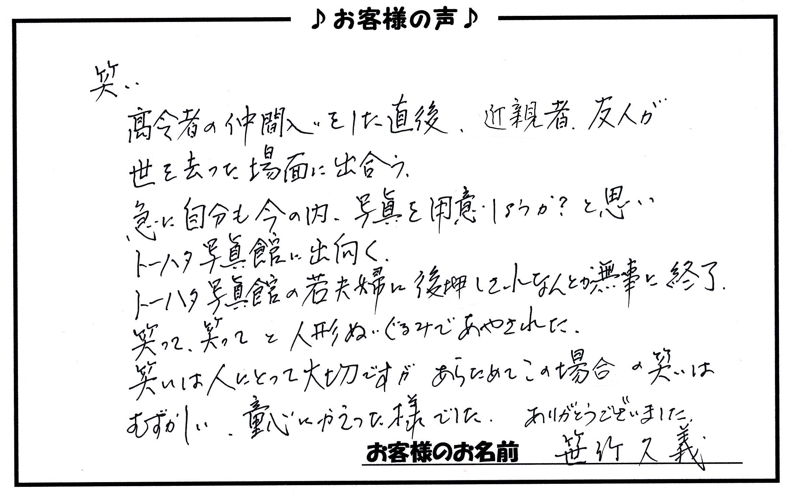 ♪お客様の声♪
笑い
高令者の仲間入いをした直後、近親者、友人が
世を去った場面に出合う、
急に自分も今の内、写真を用意しようか?と思い
トーハタ写真館に出向く、
トーハタ写真館の若夫婦に後押しされなんとか無事に終了、
笑って、笑ってと人形ぬいぐるみであやされた、
笑いは人にとって大切ですが あらためてこの場合の笑いは
むずかしい、童心にかえった様でした、 ありがとうございました、
お客様のお名前 笹竹久義